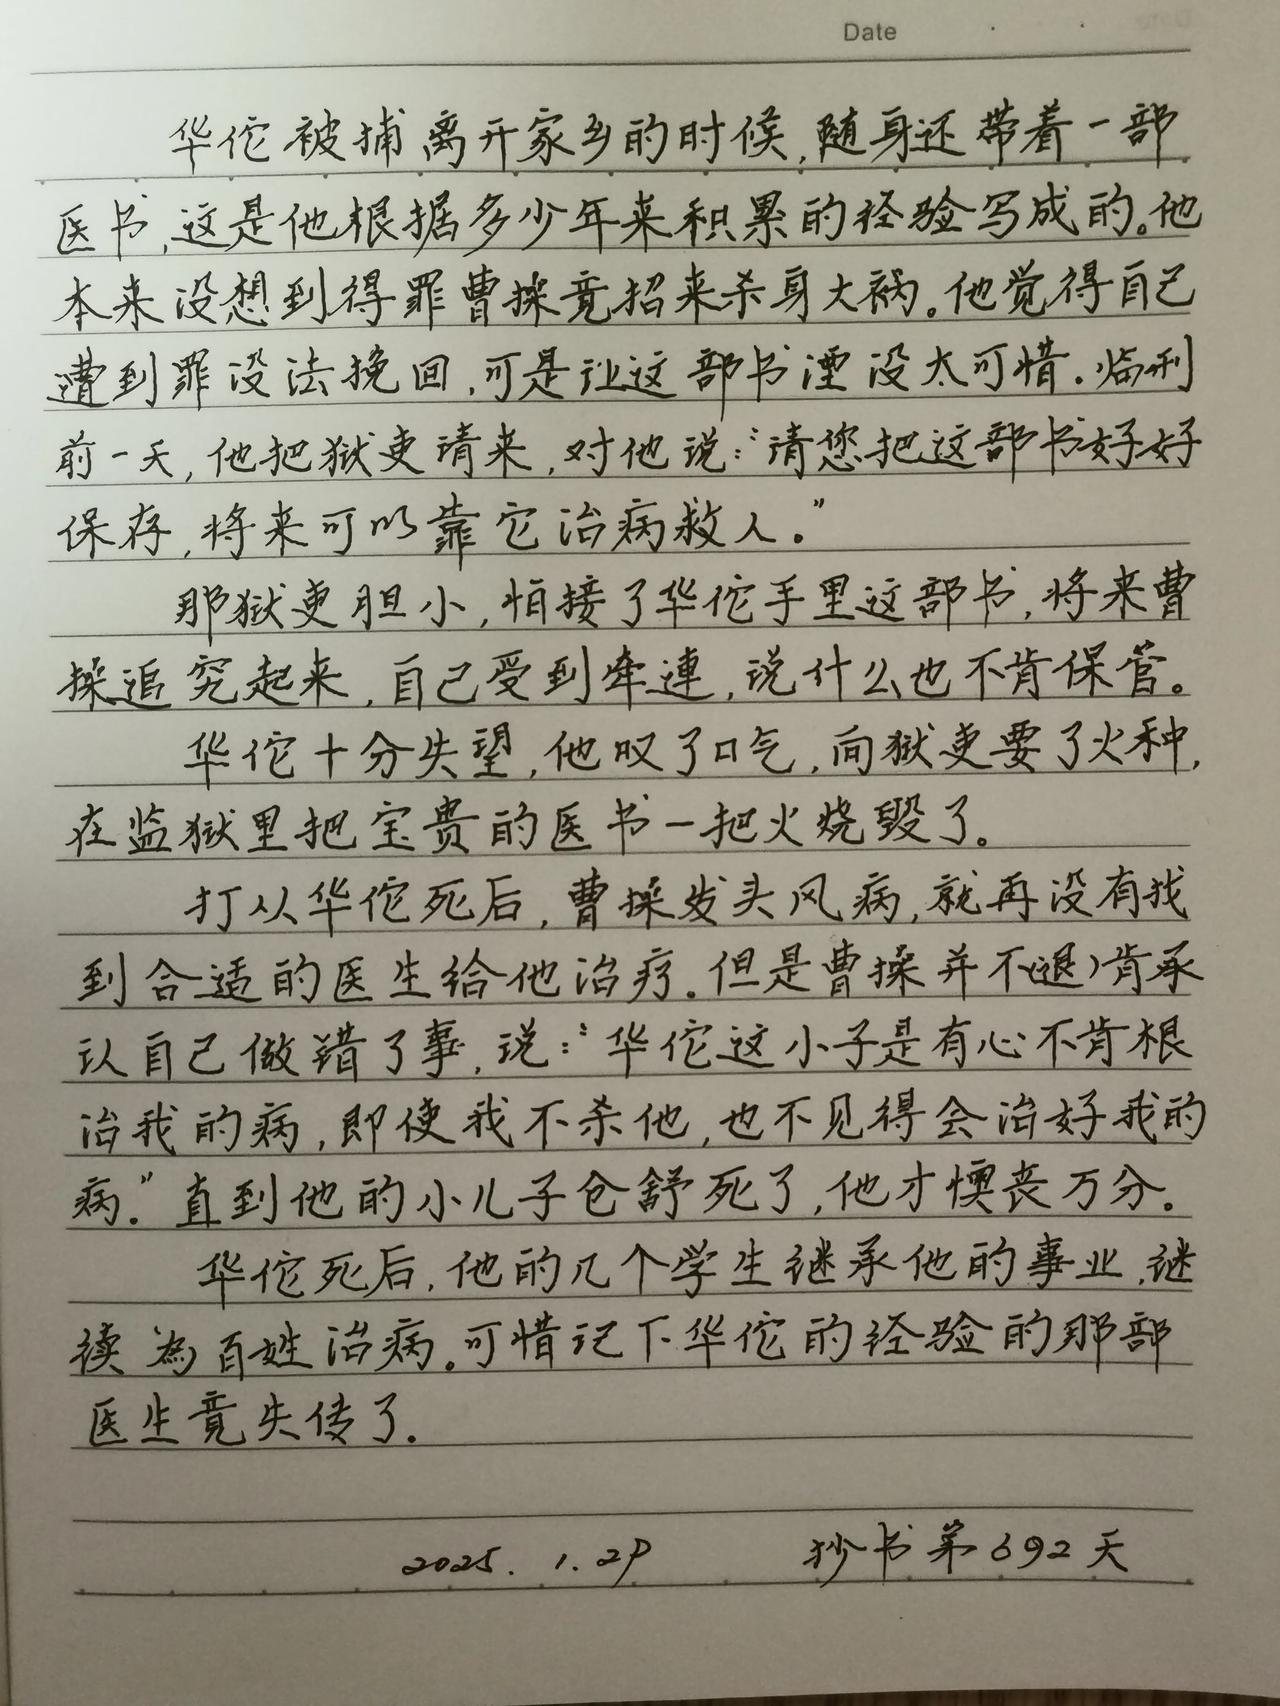 Date
华佗被捕离开家乡的时候,随身还带着一部
医书,这是他根据多少年来积累的经验写成的。他
本来没想到得罪曹操竟招来杀身大祸。他觉得自己
遭到罪没法挽回,可是让这部书湮没太可惜.临刑
前一天,他把狱吏请来,对他说:“请您把这部书好好
保存,将来可以靠它治病救人。”
那狱吏胆小,怕接了华佗手里这部书,将来曹
操追究起来,自己受到牵連,说什么也不肯保管。
华佗十分失望,他叹了口气,向狱吏要了火种,
在监狱里把宝贵的医书一把火烧毁了。
打从华佗死后,曹操发头风病,就再没有找
到合适的医生给他治疗.但是曹操并不(退)肯承
认自己做错了事,说:“华佗这小子是有心不肯根
治我的病,即使我不杀他,也不见得会治好我的
病.”直到他的小儿子仓舒死了,他才懊丧万分。
华佗死后,他的几个学生继承他的事业,继
续為百姓治病。可惜记下华佗的经验的那部
医生竟失传了.
2025.1.29 抄书第692天